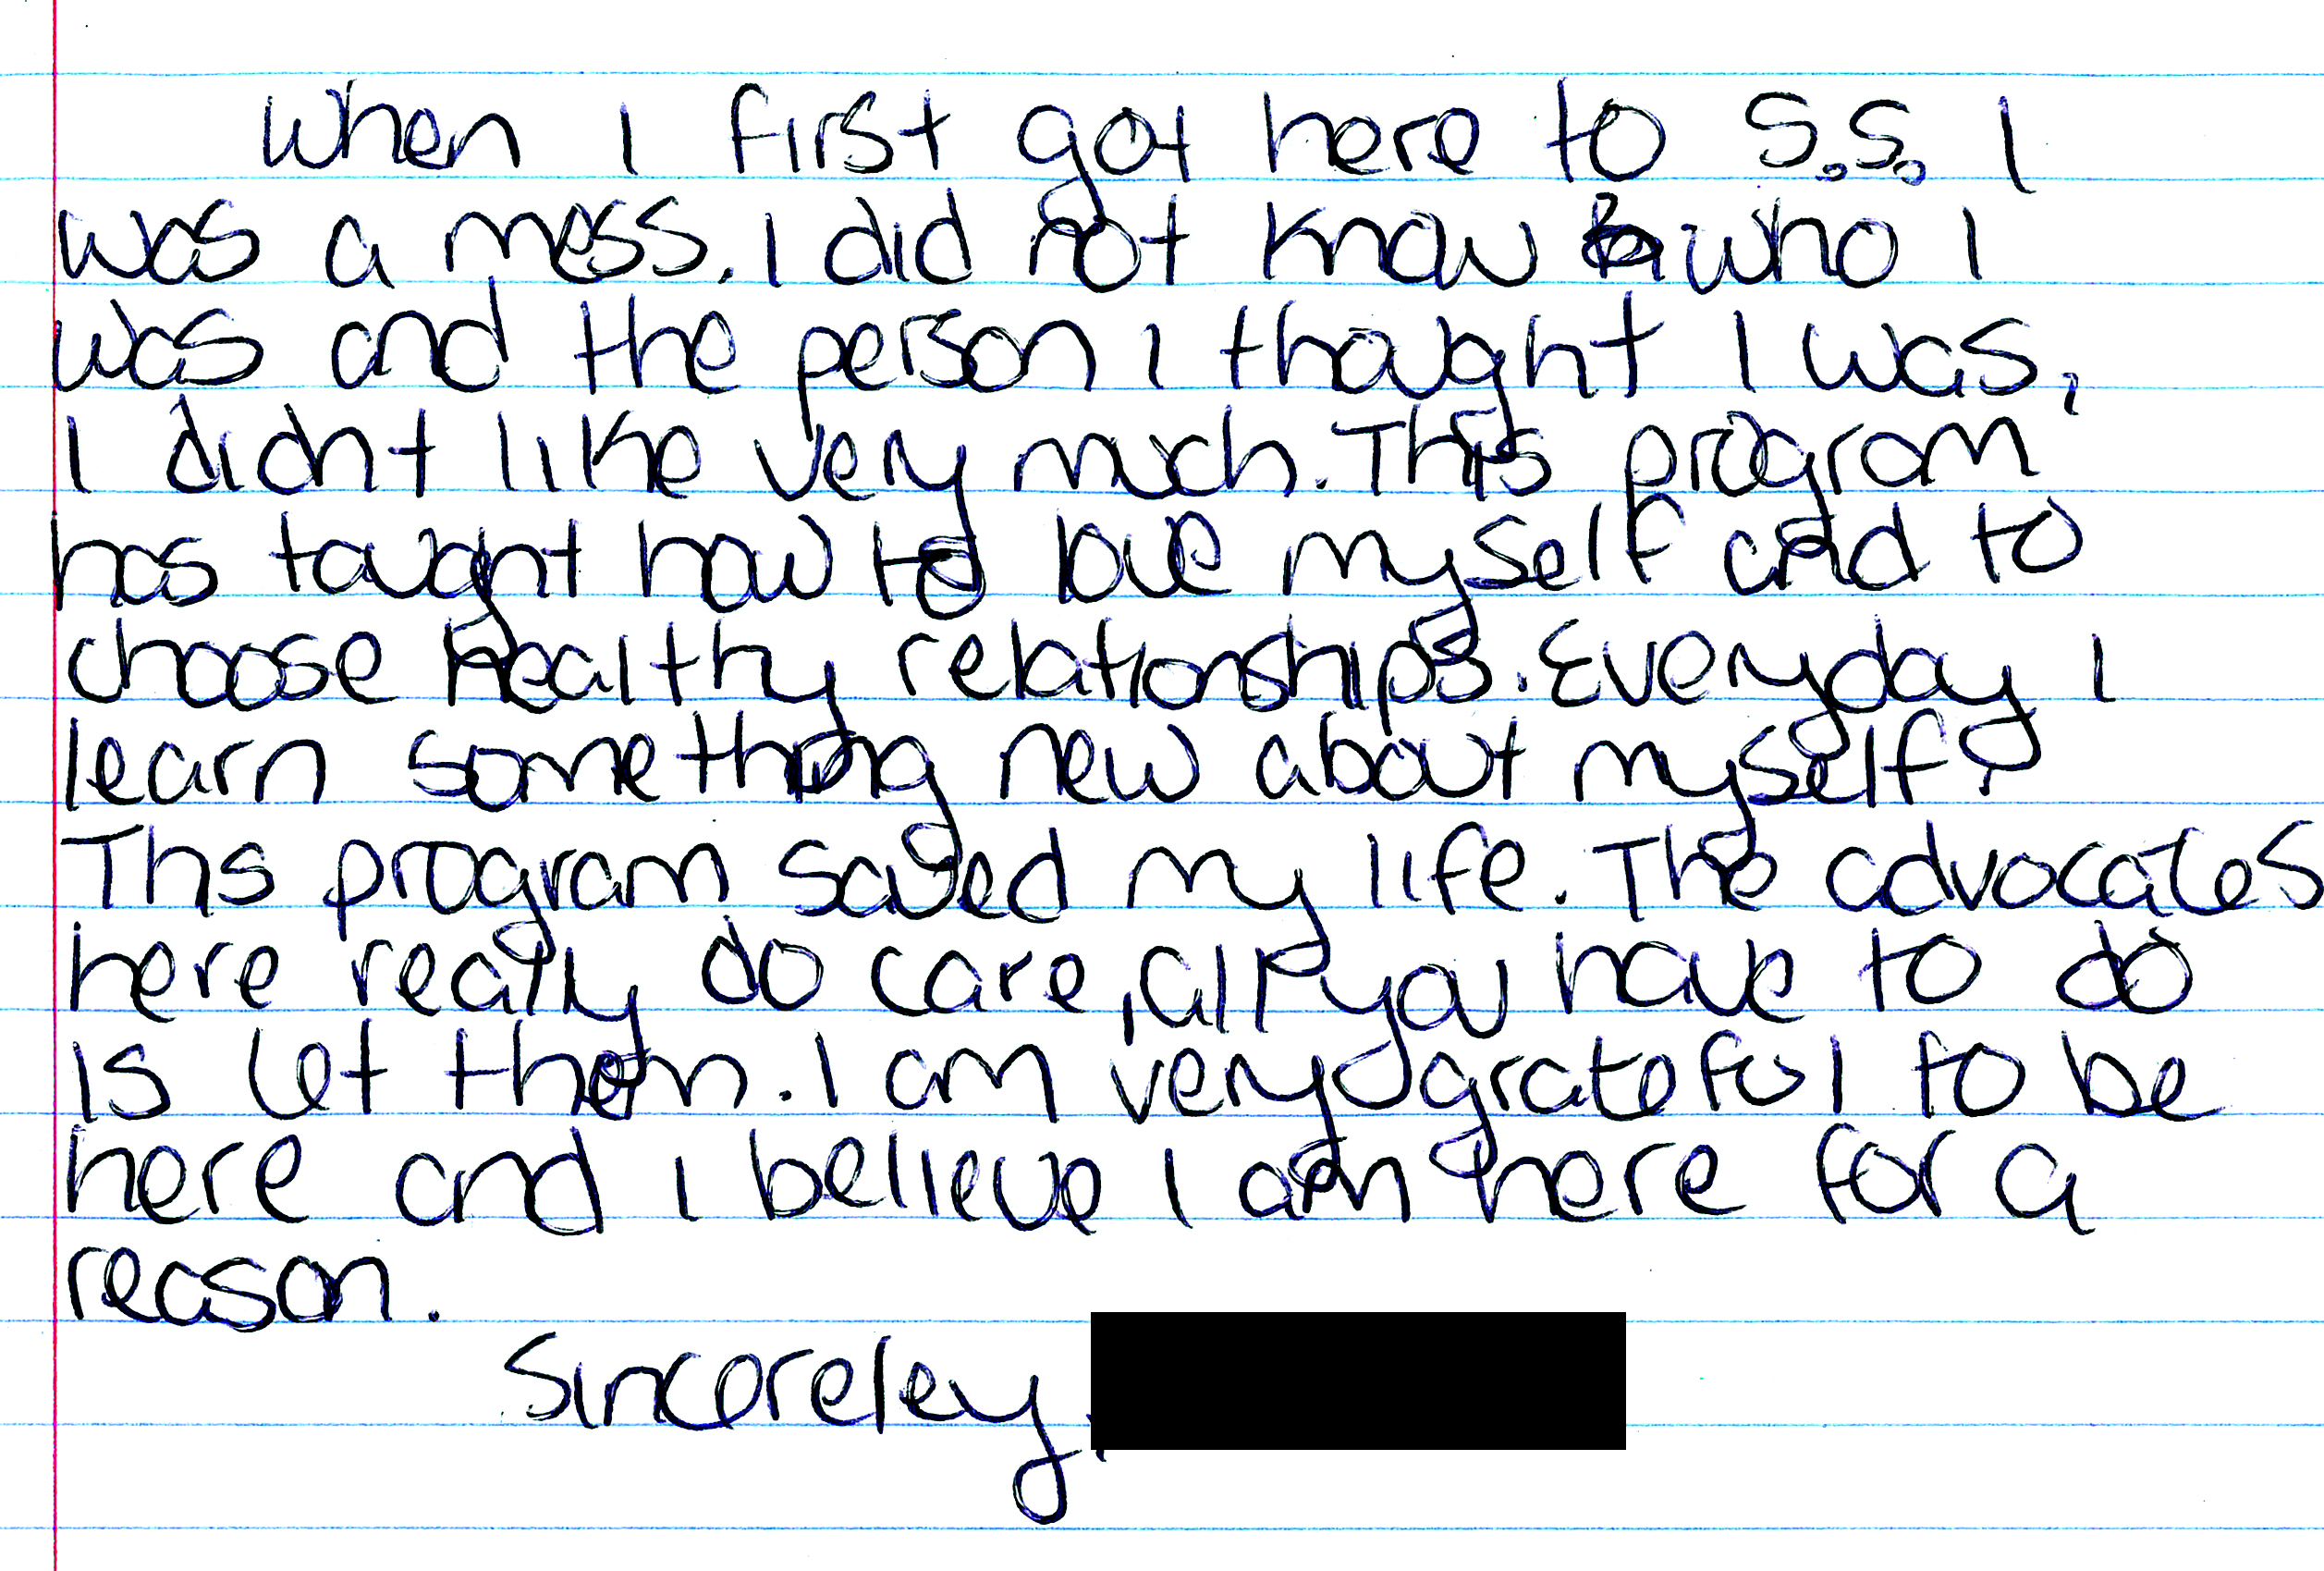 When I first got here to S.S. I
was a mess. I did not know who I
was and the person I thought I was,
I didnt like very much. This program
has taught how to love myself and to
choose healthy relationships. Everyday I
learn something new about myself.
This program saved my life. The advocates
here really do care, all you have to do
is let them. I am very grateful to be
here and I believe I am here for a
reason.
Sincereley,